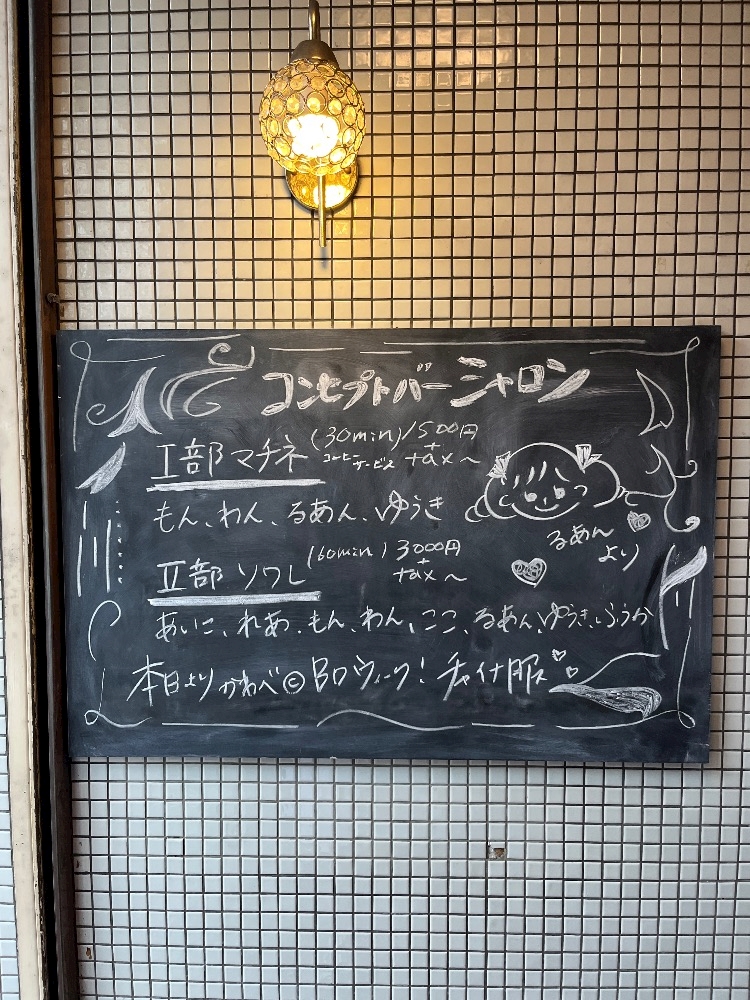 コンセプトバー シャロン
Ⅰ部 マチネ (30min) 1500円
コーヒーサービス + tax～
もん、わん、るあん、ゆうき
るあん
より
Ⅱ部 ソワレ (60min) 3000円
+ tax～
あいこ、れあ、もん、わん、ここ、るあん、ゆうき、ふうか
本日より かわべ© BDウィーク! チャイナ服